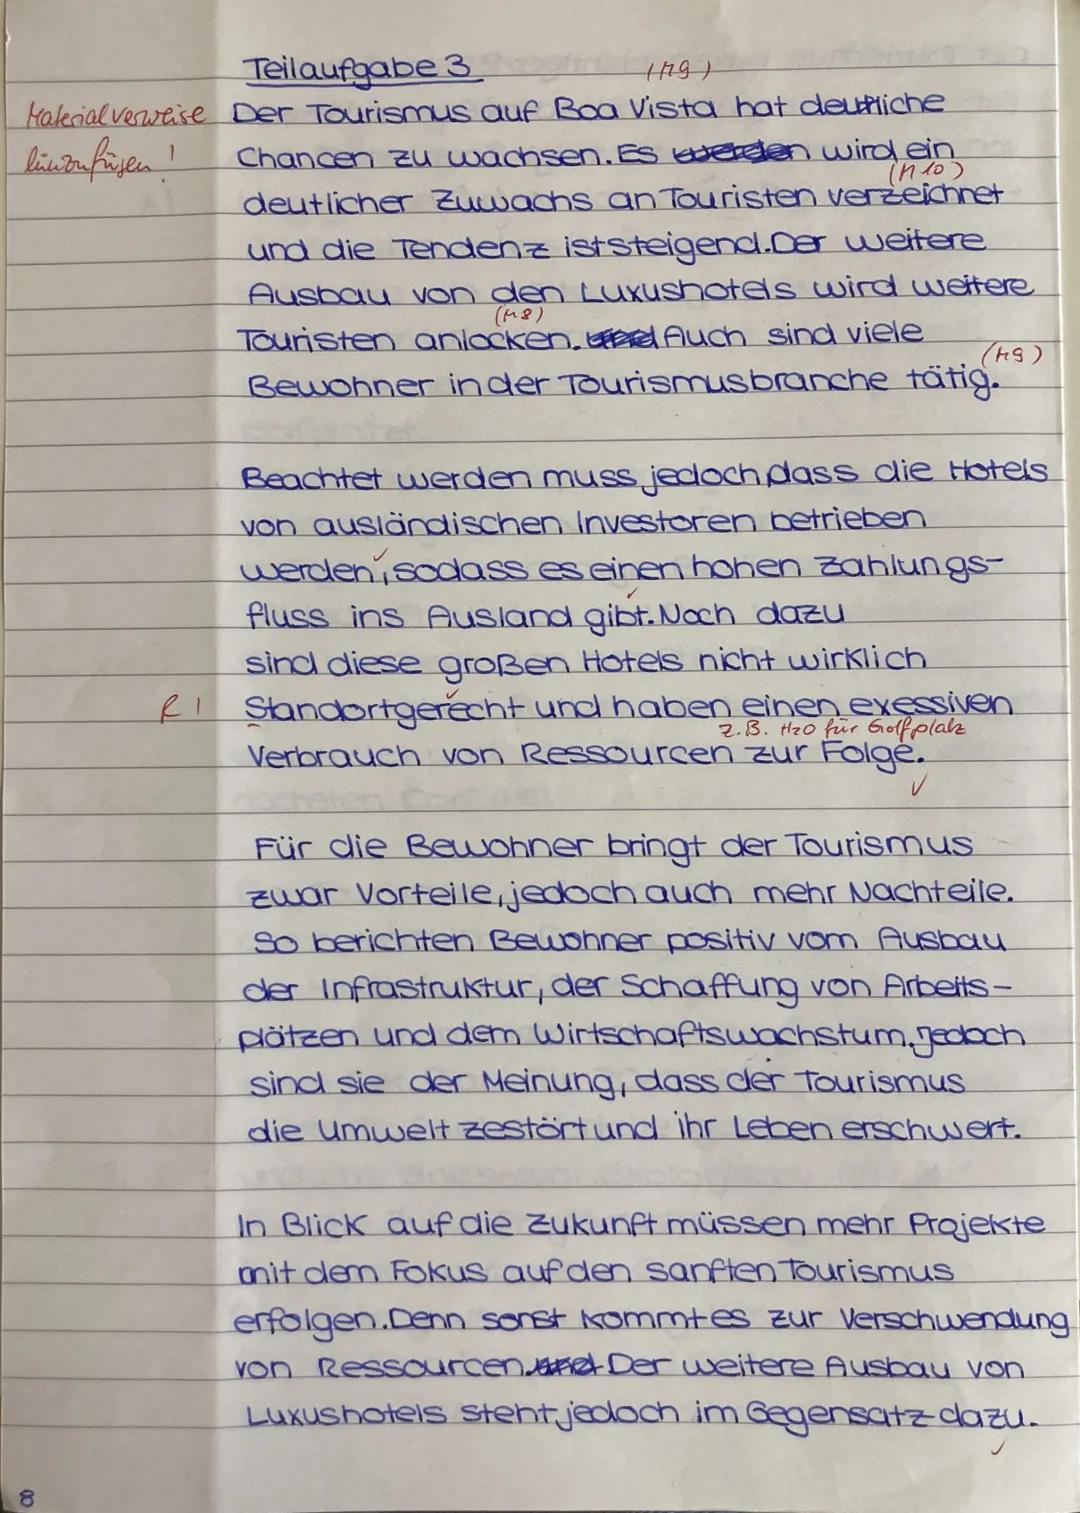 Teilaufgabe 3
(M9)
Materialverweise
hinzufügen!
Der Tourismus auf Boa Vista hat deutliche
Chancen zu wachsen. Es werden wird ein
(M10)
deutlicher Zuwachs an Touristen verzeichnet
und die Tendenz ist steigend. Der weitere
Ausbau von den Luxushotels wird weitere
(M8)
Touristen anlocken. und Auch sind viele
(M9)
Bewohner in der Tourismusbranche tätig.
Beachtet werden muss jedoch, dass die Hotels
von ausländischen Investoren betrieben
werden, sodass es einen hohen Zahlungs-
fluss ins Ausland gibt. Noch dazu
sind diese großen Hotels nicht wirklich
R! Standortgerecht und haben einen exessiven
z.B. H2O für Golfplatz
Verbrauch von Ressourcen zur Folge.
Für die Bewohner bringt der Tourismus
zwar Vorteile, jedoch auch mehr Nachteile.
So berichten Bewohner positiv vom Ausbau
der Infrastruktur, der Schaffung von Arbeits-
plätzen und dem Wirtschaftswachstum. Jedoch
sind sie der Meinung, dass der Tourismus
die Umwelt zestört und ihr Leben erschwert.
In Blick auf die Zukunft müssen mehr Projekte
mit dem Fokus auf den sanften Tourismus
erfolgen. Denn sonst kommt es zur Verschwendung
von Ressourcen. und Der weitere Ausbau von
Luxushotels steht jedoch im Gegensatz dazu.
8